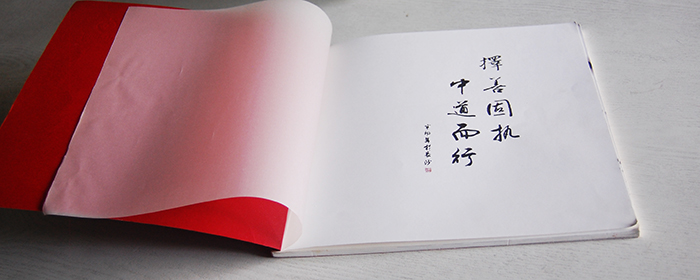 擇善固执
中道而行